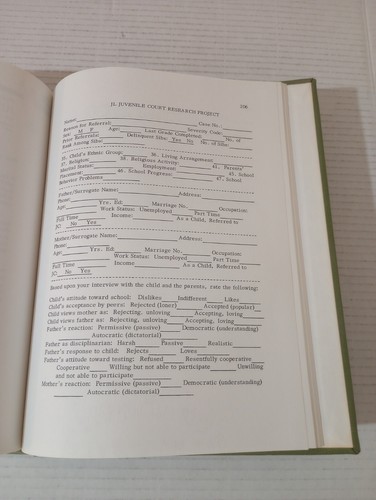 J1. JUVENILE COURT RESEARCH PROJECT
Name: Case No.:
Reason for Referral: Severity Code:
Sex: M F Age: Last Grade Completed: No. of
Prior Referrals: Delinquent Sibs: Yes No No. of Sibs:
Rank Among Sibs:
35. Child's Ethnic Group: 36. Living Arrangement
37. Religion: 38. Religious Activity: 41. Parents'
Marital Status: Employment 45. School
Placement: 46. School Progress: 47. School
Behavior Problems
Father/Surrogate Name: Address:
Phone:
Age: Yrs. Ed: Marriage No. Occupation:
Work Status: Unemployed Part Time
Full Time Income: As a Child, Referred to
JC: No Yes
Mother/Surrogate Name: Address:
Phone:
Age: Yrs. Ed: Marriage No. Occupation:
Work Status: Unemployed Part Time
Full Time Income As a Child, Referred to
JC: No Yes
Based upon your interview with the child and the parents, rate the following:
Child's attitude toward school: Dislikes Indifferent Likes
Child's acceptance by peers: Rejected (loner) Accepted (popular)
Child views mother as: Rejecting, unloving Accepting, loving
Child views father as: Rejecting, unloving Accepting, loving
Father's reaction: Permissive (passive) Democratic (understanding)
Autocratic (dictatorial)
Father as disciplinarian: Harsh Passive Realistic
Father's response to child: Rejects Loves
Father's attitude toward testing: Refused Resentfully cooperative
Cooperative Willing but not able to participate Unwilling
and not able to participate
Mother's reaction: Permissive (passive) Democratic (understanding)
Autocratic (dictatorial)